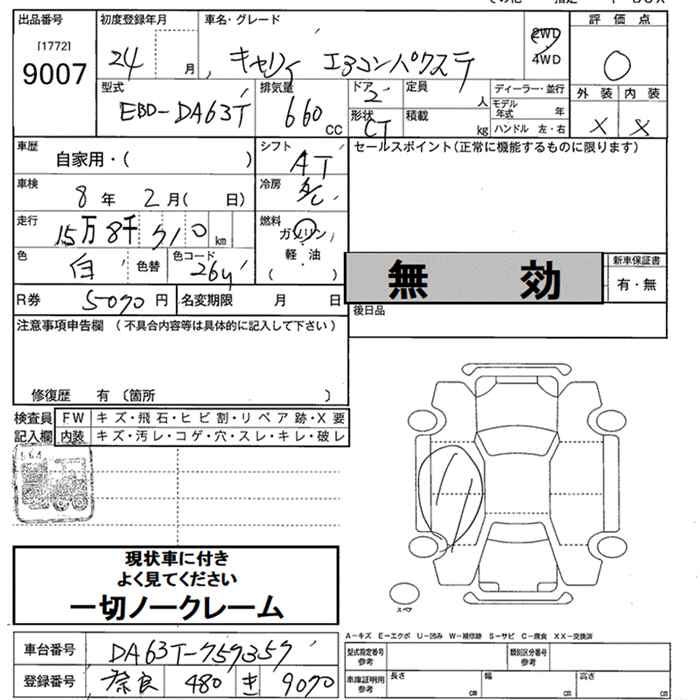 出品番号
[1772]
9007
初度登録年月
24 月
車名・グレード
キャリィ エアコンパワステ
2WD
4WD
評価点
外装 内装
× ×
型式
EBD-DA63T
排気量
660 CC
ドア 2
形状 CT
定員 人
積載 kg
ディーラー・並行
モデル年式 年
ハンドル 左・右
車歴
自家用・( )
シフト
AT
セールスポイント(正常に機能するものに限ります)
車検
8年 2月( 日)
冷房
A/C
走行
15万8千710 km
燃料
ガソリン
軽・油
( )
色
白
色替
色コード
26U
無効
新車保証書
有・無
R券 5070円
名変期限 月 日
後日品
注意事項申告欄 (不具合内容等は具体的に記入して下さい)
修復歴 有〔箇所 〕
検査員記入欄
FW キズ・飛石・ヒビ割・リペア跡・X要
内装 キズ・汚レ・コゲ・穴・スレ・キレ・破レ
現状車に付き
よく見てください
一切ノークレーム
スペア
A-キズ E-エクボ U-凹み W-補修跡 S-サビ C-腐食 XX-交換済
車台番号 DA63T-759357
登録番号 奈良 480 き 9070
型式指定番号参考
類別区分番号参考
車庫証明用参考
長さ cm
幅 cm
高さ cm